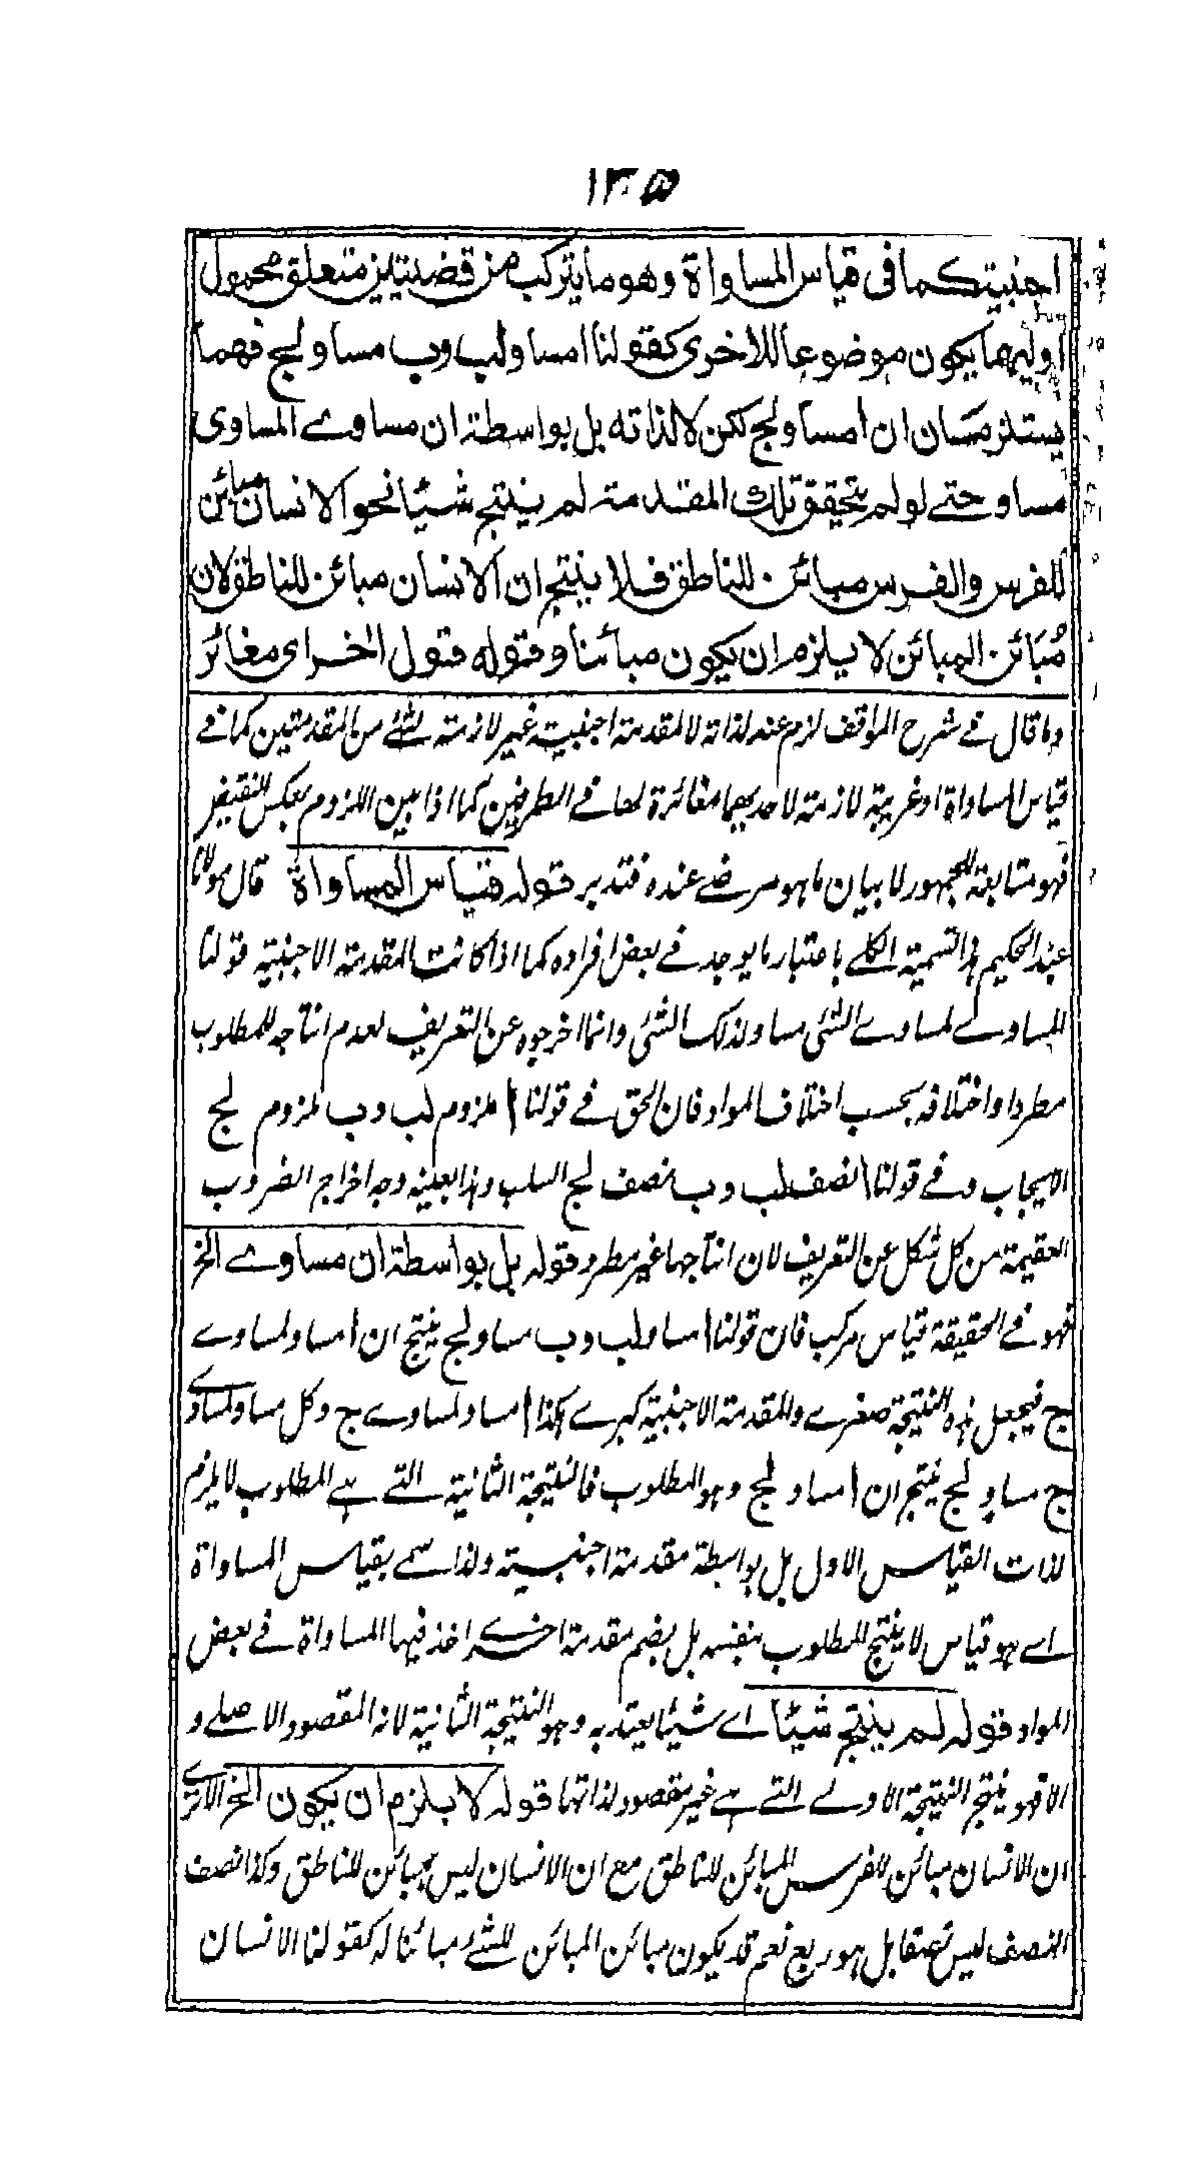 ١٣٥
اجنبیة کما فی قیاس المساواة وهو ما یترکب من قضیتین متعلق محمول
اولیهما یکون موضوعا للاخری کقولنا ا مساو لب وب مساو لج فهما
یستلزمان ان ا مساو لج لکن لا لذاته بل بواسطة ان مساوے المساوی
مساو حتے لو لم یتحقق تلك المقدمة لم ینتج شیئا نحو الانسان مبائن
للفرس والفرس مبائن للناطق فلا ینتج ان الانسان مبائن للناطق لان
مُبَائن المبائن لا یلزم ان یکون مبائنا وقوله قول اٰخر ای مغائر
وما قال فے شرح المواقف لزم عنه لذاته لا لمقدمة اجنبیة غیر لازمة لشئے من المقدمتین کما فے
قیاس المساواة او غریبة لازمة لاحدیهما مغائرة لهما فے الطرفین کما اذا بین اللزوم بعکس النقیض
فهو متابعة للجمهور لا بیان ما هو مرضے عنده فتدبر قوله قیاس المساواة قال مولانا
عبد الحکیم هذا تسمیة الکلے باعتبار ما یوجد فے بعض افراده کما اذا کانت المقدمة الاجنبیة قولنا
المساوے لمساوے الشئ مساو لذلک الشئ وانما اخرجوه عن التعریف لعدم انتاجه للمطلوب
مطردا واختلافه بحسب اختلاف المواد فان الحق فے قولنا ا ملزوم لب وب ملزوم لج
الایجاب وفے قولنا ا نصف لب وب نصف لج السلب وهذا بعینه وجه اخراج الضروب
العقیمة من کل شکل عن التعریف لان انتاجها غیر مطرد قوله بل بواسطة ان مساوے الخ
فهو فے الحقیقة قیاس مرکب فان قولنا ا مساو لب وب مساو لج ینتج ان ا مساو لمساوے
ج فیجعل هذه النتیجة صغرے والمقدمة الاجنبیة کبرے هکذا ا مساو لمساوے ج وکل مساو لمساوے
ج مساو لج ینتج ان ا مساو لج وهو المطلوب فالنتیجة الثانیة التے هے المطلوب لا یلزم
لذات القیاس الاول بل بواسطة مقدمة اجنبیة ولذا سمے بقیاس المساواة
اے هو قیاس لا ینتج المطلوب بنفسه بل بضم مقدمة اخرے اخذ فیها المساواة فے بعض
المواد قوله لم ینتج شیئا اے شیئا یعتد به وهو النتیجة الثانیة لانه المقصود الاصلے و
الا فهو ینتج النتیجة الاولے التے هے غیر مقصود لذاتها قوله لا یلزم ان یکون الخ الا ترے
ان الانسان مبائن للفرس المبائن للناطق مع ان الانسان لیس بمبائن للناطق وکذا نصف
النصف لیس بنصف بل هو ربع نعم قد یکون مبائن المبائن للشئے مبائنا له کقولنا الانسان